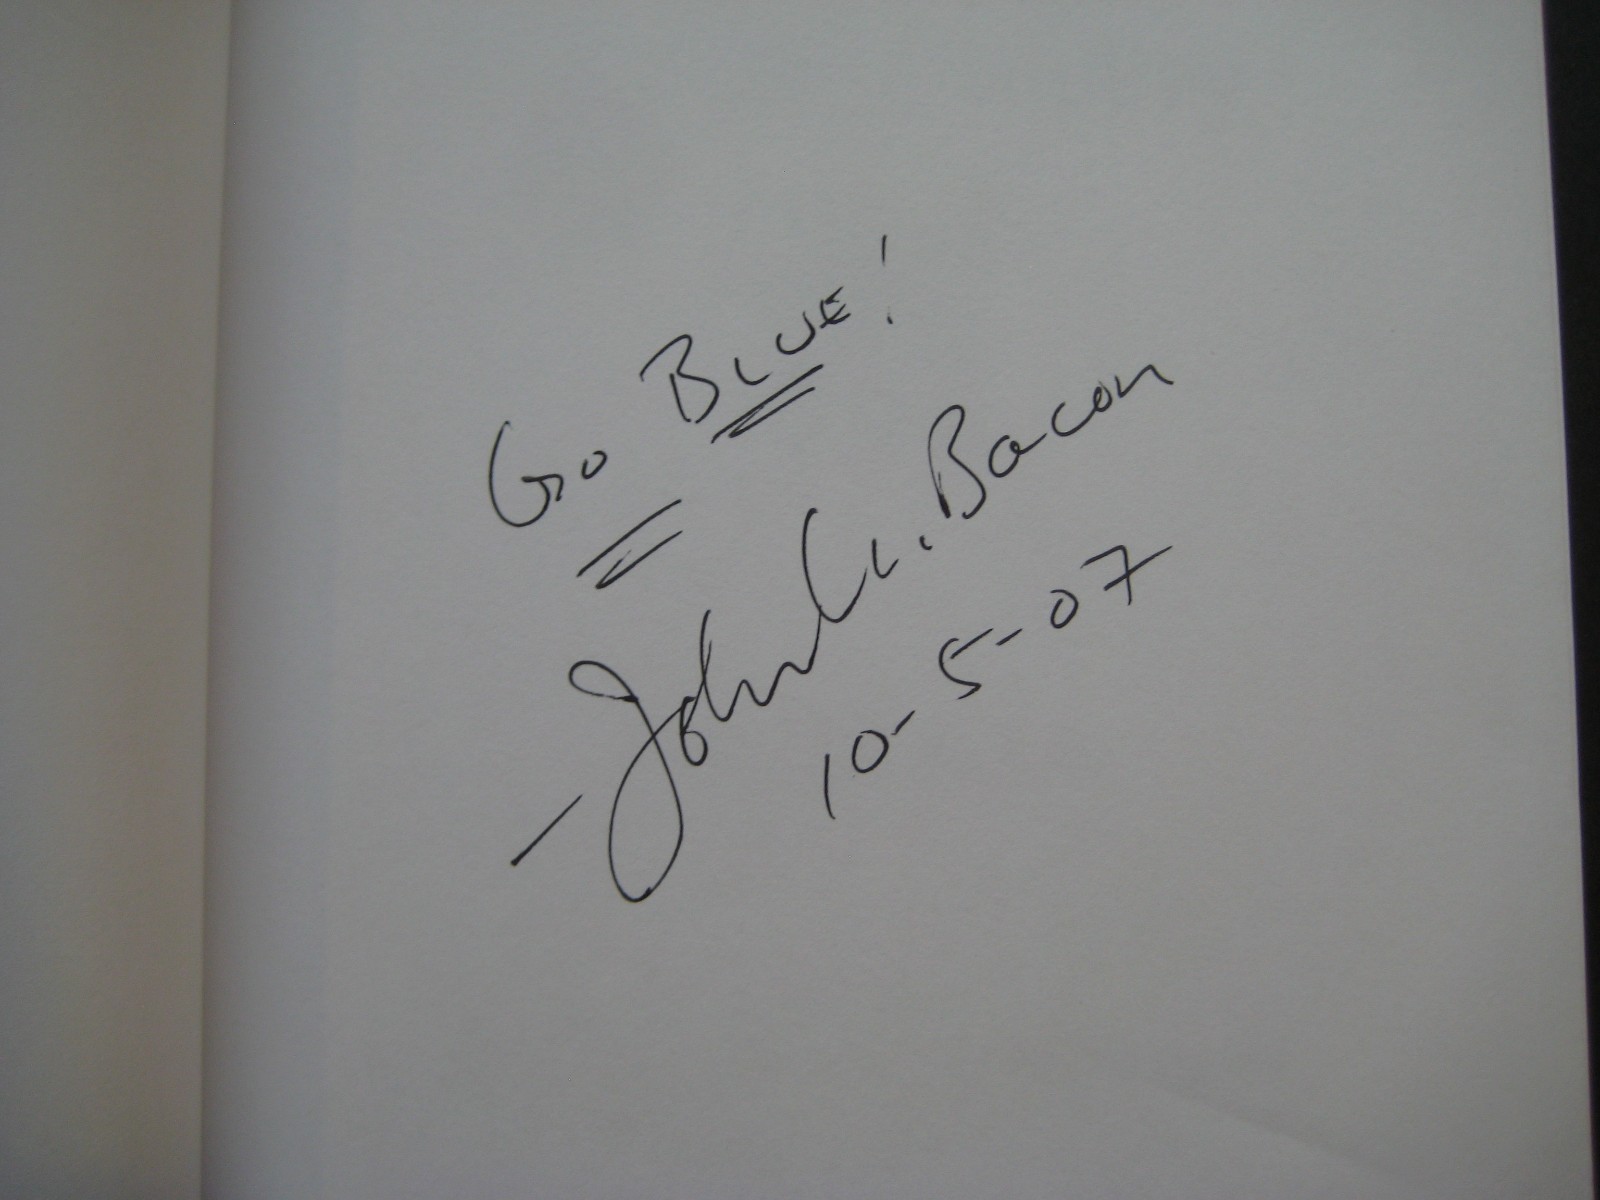 Go Blue!
- John U. Bacon
10-5-07